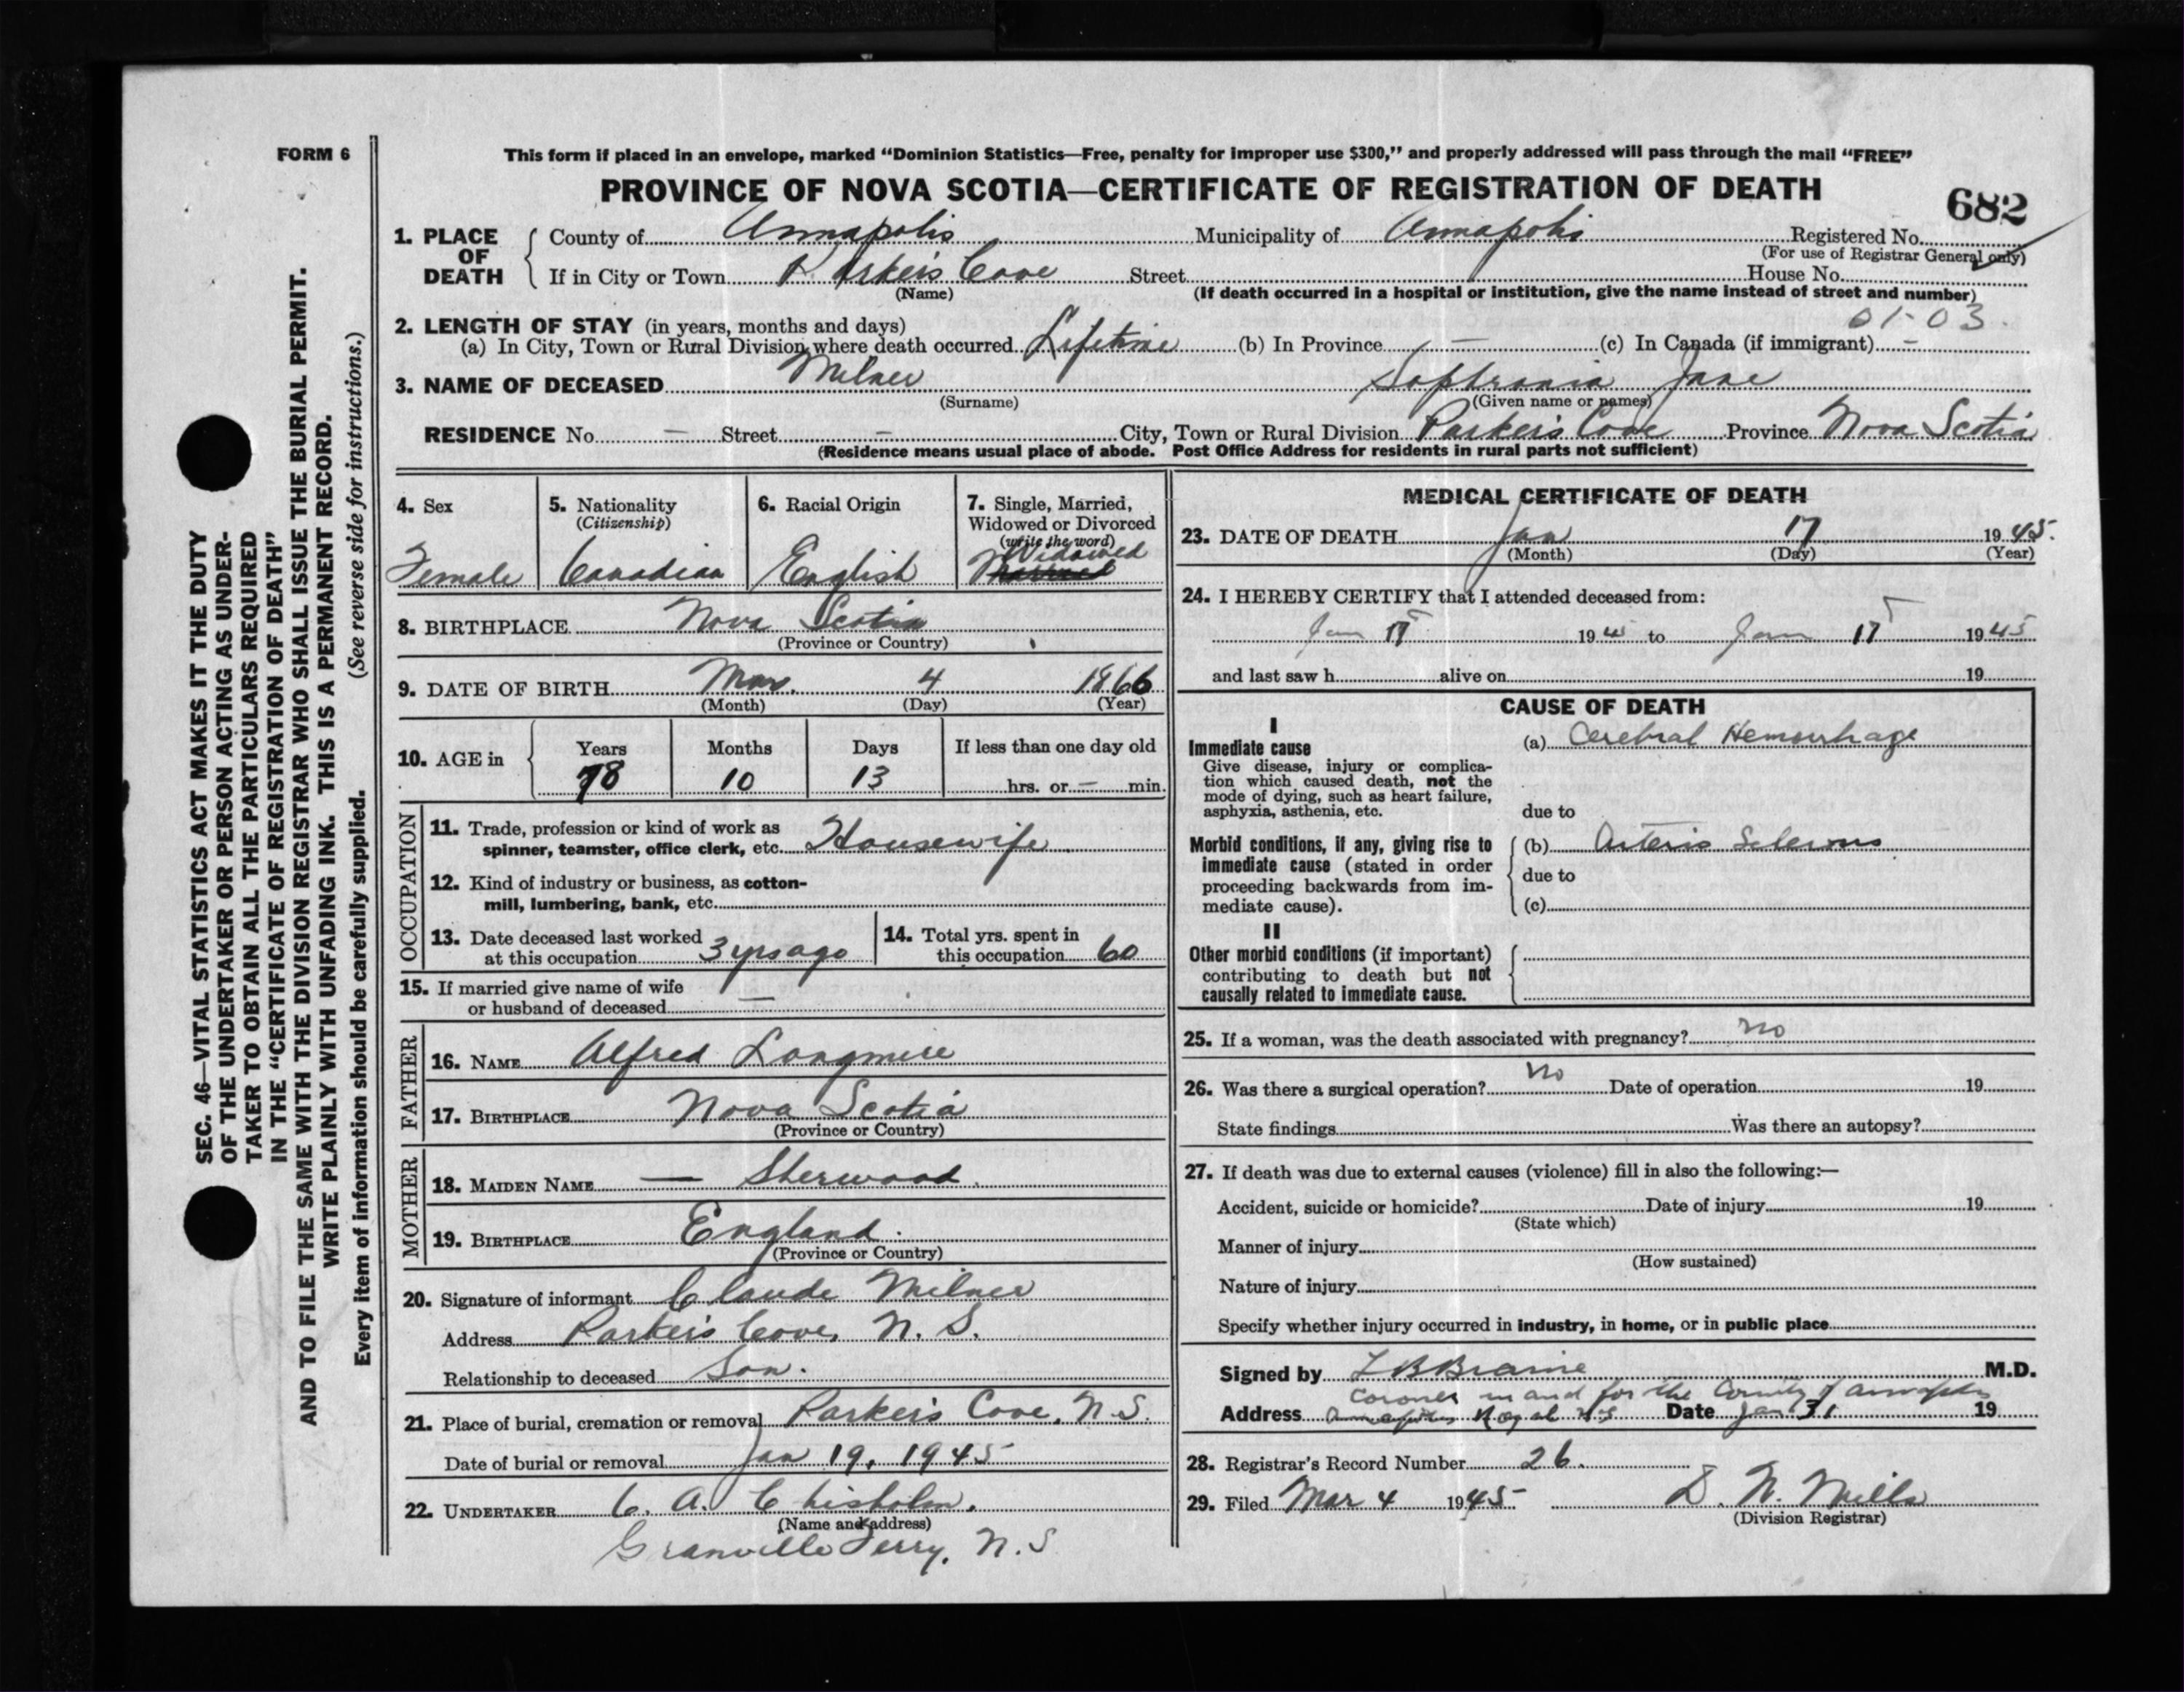 FORM 6
This form if placed in an envelope, marked “Dominion Statistics—Free, penalty for improper use $300,” and properly addressed will pass through the mail “FREE”
PROVINCE OF NOVA SCOTIA—CERTIFICATE OF REGISTRATION OF DEATH
682
1. PLACE OF DEATH County of Annapolis Municipality of Annapolis Registered No.
(For use of Registrar General only)
If in City or Town Parker's Cove Street House No.
(Name) (If death occurred in a hospital or institution, give the name instead of street and number)
01-03
2. LENGTH OF STAY (in years, months and days)
(a) In City, Town or Rural Division where death occurred Lifetime (b) In Province — (c) In Canada (if immigrant) —
3. NAME OF DECEASED Milner Sophronia Jane
(Surname) (Given name or names)
RESIDENCE No. — Street — City, Town or Rural Division Parker's Cove Province Nova Scotia
(Residence means usual place of abode. Post Office Address for residents in rural parts not sufficient)
4. Sex
Female
5. Nationality
(Citizenship)
Canadian
6. Racial Origin
English
7. Single, Married,
Widowed or Divorced
(write the word)
Widowed
8. BIRTHPLACE Nova Scotia
(Province or Country)
9. DATE OF BIRTH Mar. 4 1866
(Month) (Day) (Year)
10. AGE in Years Months Days If less than one day old
78 10 13 hrs. or — min.
OCCUPATION
11. Trade, profession or kind of work as
spinner, teamster, office clerk, etc. Housewife
12. Kind of industry or business, as cotton-
mill, lumbering, bank, etc.
13. Date deceased last worked
at this occupation 3 yrs ago
14. Total yrs. spent in
this occupation 60
15. If married give name of wife
or husband of deceased —
FATHER
16. NAME Alfred Longmire
17. BIRTHPLACE Nova Scotia
(Province or Country)
MOTHER
18. MAIDEN NAME — Sherwood
19. BIRTHPLACE England.
(Province or Country)
20. Signature of informant Claude Milner
Address Parker's Cove, N. S.
Relationship to deceased Son.
21. Place of burial, cremation or removal Parker's Cove, N.S.
Date of burial or removal Jan 19, 1945
22. UNDERTAKER C. A. Chisholm.
(Name and address)
Granville Ferry, N.S
MEDICAL CERTIFICATE OF DEATH
23. DATE OF DEATH Jan 17 1945.
(Month) (Day) (Year)
24. I HEREBY CERTIFY that I attended deceased from:
Jan 17 1945 to Jan 17 1945
and last saw h alive on 19
CAUSE OF DEATH
I
Immediate cause (a) Cerebral Hemorrhage
Give disease, injury or complica-
tion which caused death, not the
mode of dying, such as heart failure,
asphyxia, asthenia, etc. due to
Morbid conditions, if any, giving rise to (b) Arterio Sclerosis
immediate cause (stated in order
proceeding backwards from im- due to
mediate cause). (c)
II
Other morbid conditions (if important)
contributing to death but not
causally related to immediate cause.
25. If a woman, was the death associated with pregnancy? no
26. Was there a surgical operation? no Date of operation 19
State findings Was there an autopsy?
27. If death was due to external causes (violence) fill in also the following:—
Accident, suicide or homicide? Date of injury 19
(State which)
Manner of injury
(How sustained)
Nature of injury
Specify whether injury occurred in industry, in home, or in public place
Signed by L B Braine M.D.
Coroner in and for the County of Annapolis
Address Annapolis Royal N S Date Jan 31 19
28. Registrar's Record Number 26.
29. Filed Mar 4 1945 D. N. Mills
(Division Registrar)
SEC. 46—VITAL STATISTICS ACT MAKES IT THE DUTY
OF THE UNDERTAKER OR PERSON ACTING AS UNDER-
TAKER TO OBTAIN ALL THE PARTICULARS REQUIRED
IN THE “CERTIFICATE OF REGISTRATION OF DEATH”
AND TO FILE THE SAME WITH THE DIVISION REGISTRAR WHO SHALL ISSUE THE BURIAL PERMIT.
WRITE PLAINLY WITH UNFADING INK. THIS IS A PERMANENT RECORD.
Every item of information should be carefully supplied. (See reverse side for instructions.)